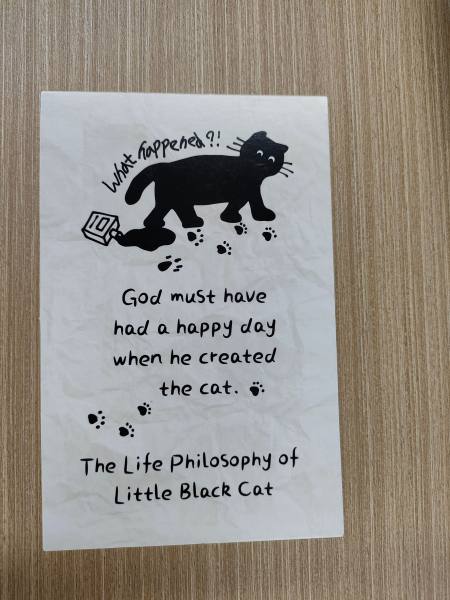 What happened?!
God must have
had a happy day
when he created
the cat.
The Life Philosophy of
Little Black Cat